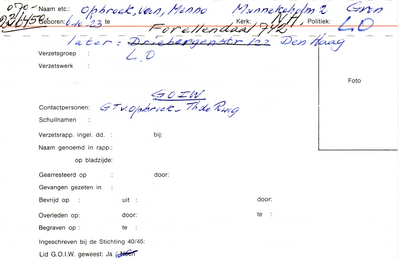 070-
Naam etc.: Opbroek, van, Menno Munnekeholm 2 Gron
Geboren: 6.10.23 te Kerk: N.H. Politiek:
Forellendaal 712 L.O
later: Driebergenstr 122 Den Haag
Verzetsgroep : L.O
Verzetswerk :
Foto
G.O.I.W
Contactpersonen: G.T.v. Opbroek -
Schuilnaam :
Verzetsrapp. ingel. dd. : bij:
Naam genoemd in rapp.:
op bladzijde:
Gearresteerd op : door:
Gevangen gezeten in :
Bevrijd op : uit : door:
Overleden op: door: te :
Begraven op : te :
Ingeschreven bij de Stichting 40/45:
Lid G.O.I.W. geweest: Ja / Neen